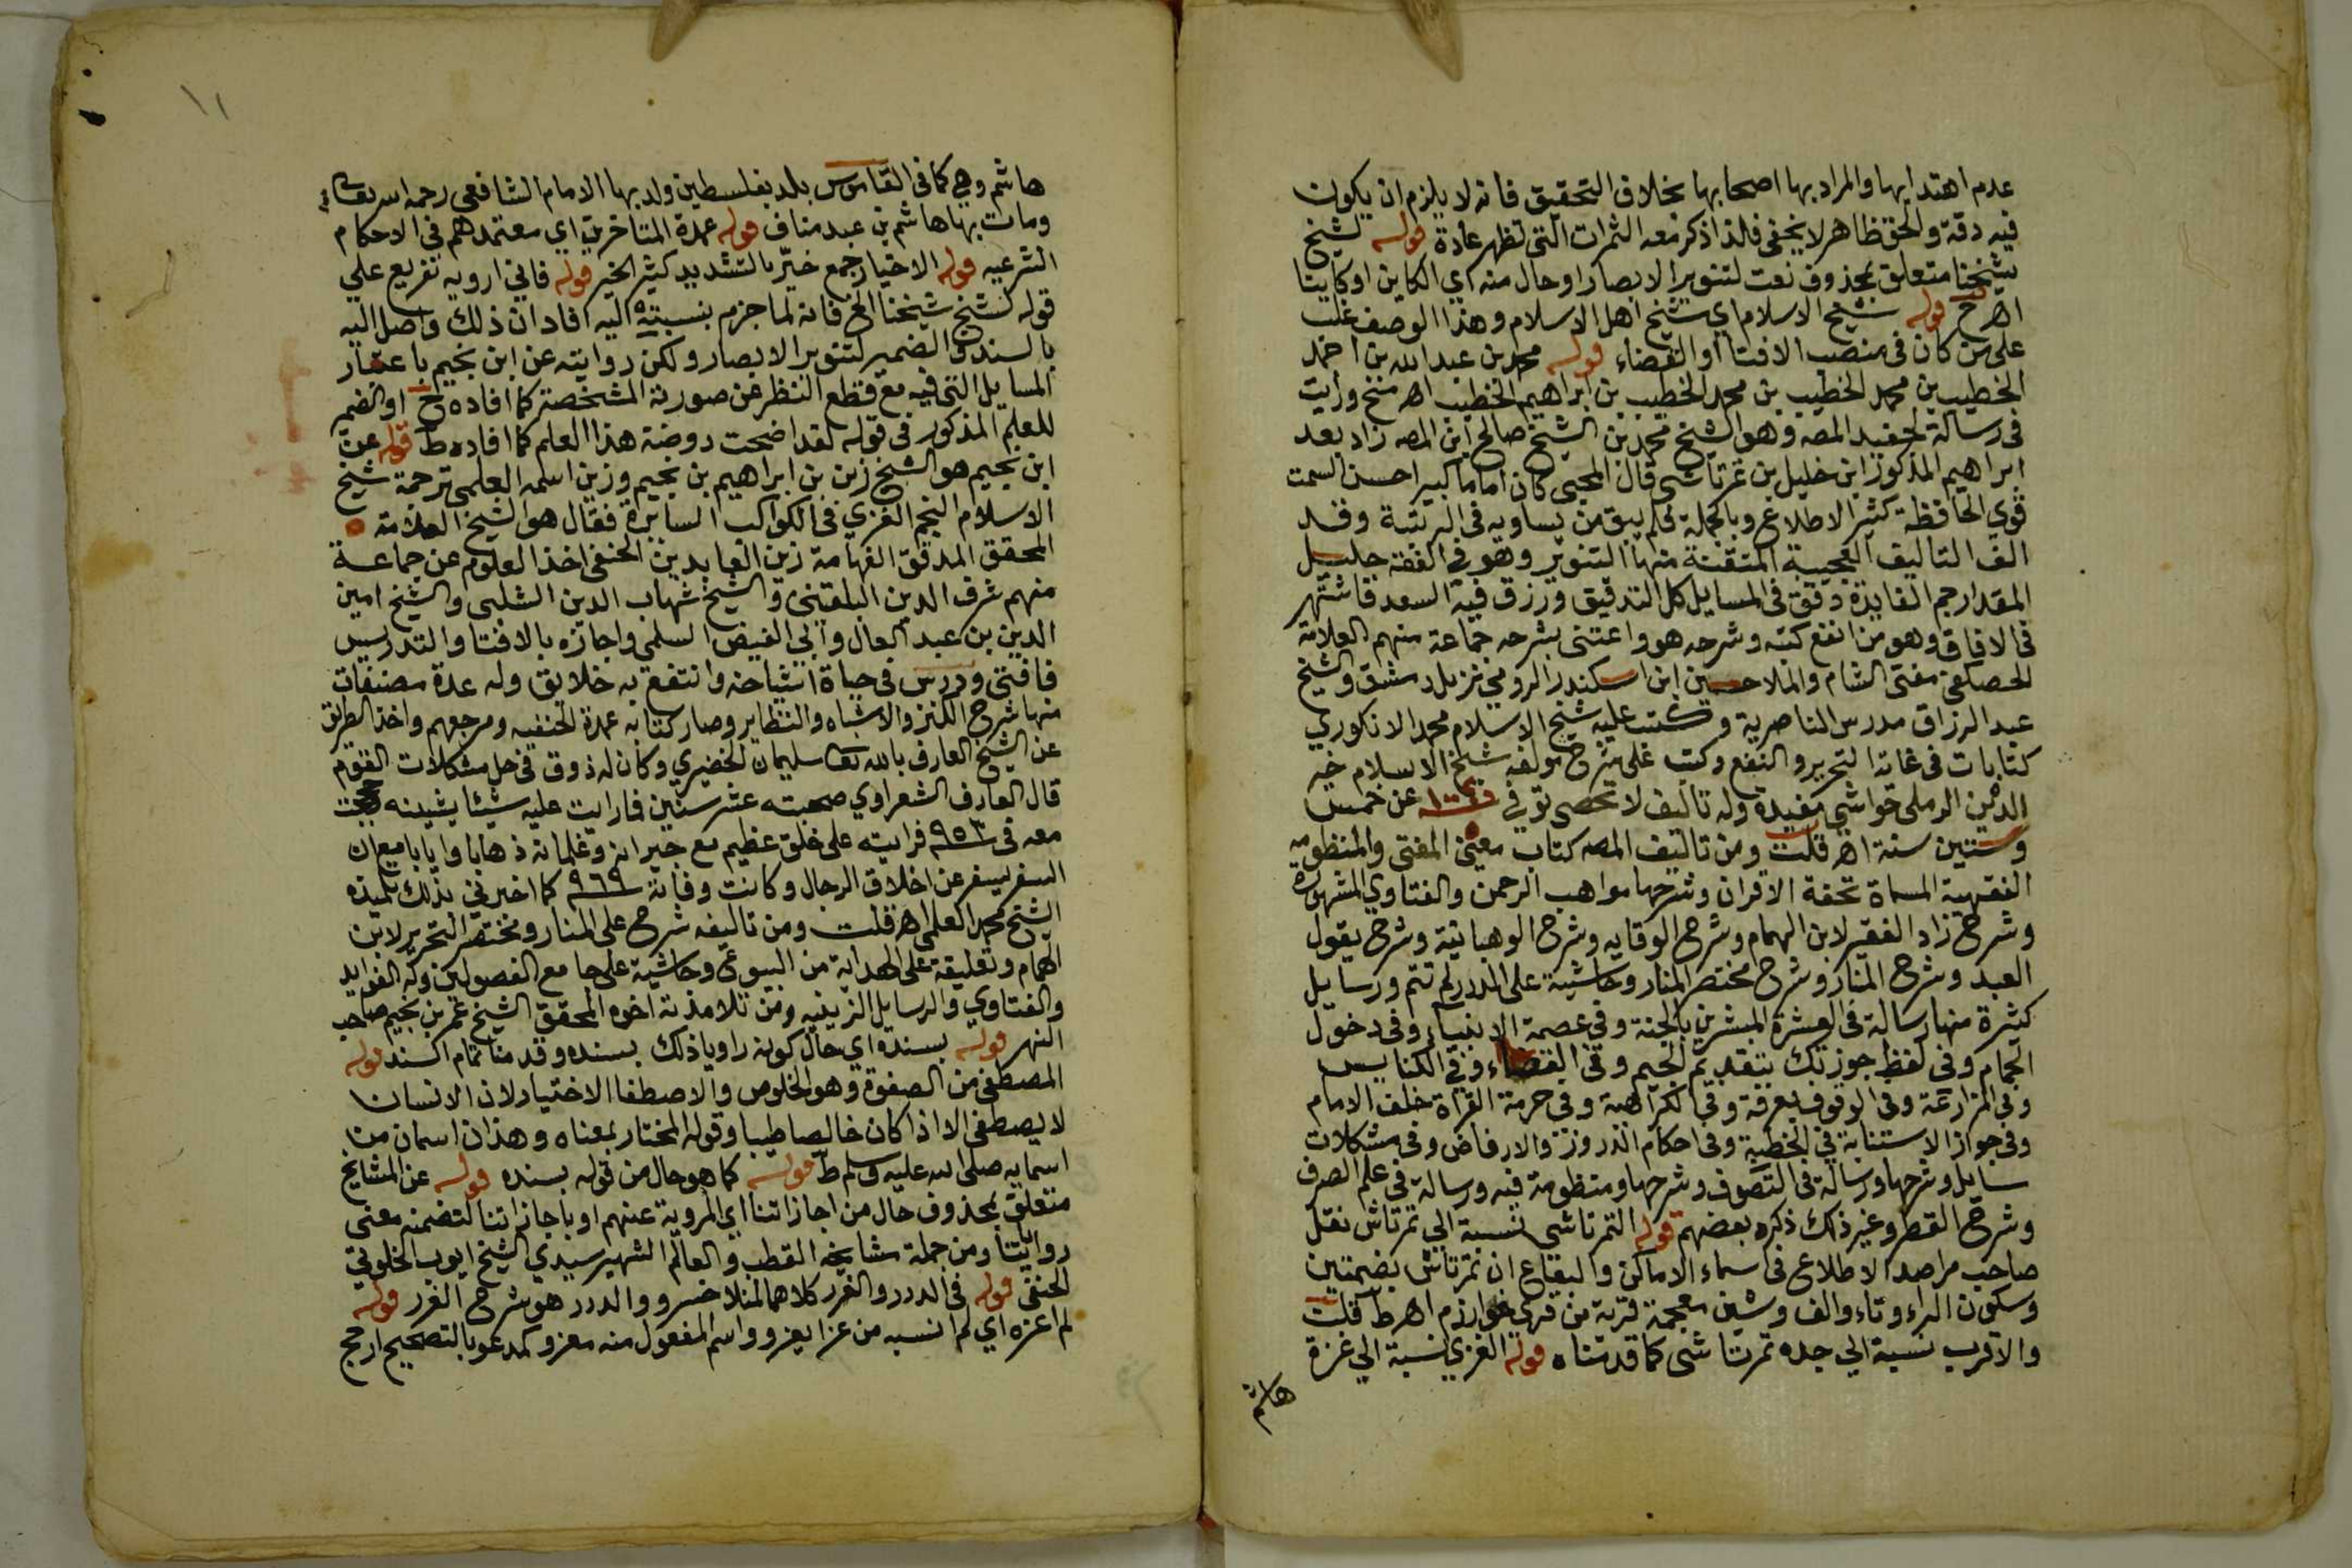 عدم اهتدابها والمراد بها اصحابها بخلاف التحقيق فانه لا يلزم ان يكون
فيه دقة والحق ظاهر لا يخفى فلذا ذكر معه الثمرات التي تظهر عادة قوله لشيخ
شيخنا متعلق بمحذوف نعت لتنوير الابصار او حال منه اي الكاين او كاينا
اهـ ح قوله شيخ الاسلام اي شيخ اهل الاسلام وهذا الوصف غلب
على من كان في منصب الافتا او القضاء قوله محمد بن عبد الله بن احمد
الخطيب بن محمد الخطيب بن محمد الخطيب بن ابراهيم الخطيب اهـ منح ورايت
في رسالة لحفيد المصه وهو الشيخ محمد بن الشيخ صالح ابن المصه زاد بعد
ابراهيم المذكور ابن خليل بن تمرتاشي قال المحبي كان اماما كبيرا حسن السمت
قوي الحافظة كثير الاطلاع وبالجملة فلم يبق من يساويه في الرتبة وقد
الف التاليف العجيبة المتقنة منها التنوير وهو في الفقه جليل
المقدار جم الفايدة دقق في المسايل كل التدقيق ورزق فيه السعد فاشتهر
في الافاق وهو من انفع كتبه وشرحه هو واعتنى بشرحه جماعة منهم العلامة
الحصكفي مفتي الشام والملا حسين ابن اسكندر الرومي نزيل دمشق والشيخ
عبد الرزاق مدرس الناصرية وكتب عليه شيخ الاسلام محمد الانكوري
كتابات في غاية التحرير والنفع وكتب على شرح مولفه شيخ الاسلام خير
الدين الرملي حواشي مفيدة وله تاليف لا تحصى توفي ١٠٠٤ عن خمس
وستين سنة اهـ قلت ومن تاليف المصه كتاب معين المفتي والمنظومة
الفقهية المسماة تحفة الاقران وشرحها مواهب الرحمن والفتاوي المشهورة
وشرح زاد الفقير لابن الهمام وشرح الوقايه وشرح الوهبانية وشرح يقول
العبد وشرح المنار وشرح مختصر المنار وحاشية على الدرر لم تتم ورسايل
كثيرة منها رسالة في العشرة المبشرين بالجنة وفي عصمة الانبياء وفي دخول
الحمام وفي لفظ جوزتك بتقديم الجيم وفي القضاء وفي الكنايس
وفي المزارعة وفي الوقوف بعرفة وفي الكراهة وفي حرمة القراة خلف الامام
وفي جواز الاستنابة في الخطبة وفي احكام الدروز والارفاض وفي مشكلات
سايل وشرحها ورسالة في التصوف وشرحها ومنظومة فيه ورسالة في علم الصرف
وشرح القطر وغير ذلك ذكره بعضهم قوله التمرتاشي نسبة الي تمرتاش نقل
صاحب مراصد الاطلاع في اسماء الاماكن والبقاع ان تمرتاش بضمتين
وسكون الراء وتاء والف وشين معجمة قرية من قرى خوارزم اهـ ط قلت
والاقرب نسبة الي جده تمرتاشي كما قدمناه قوله الغزي نسبة الي غزة
هاشم
١١
هاشم وهي كما في القاموس بلد بفلسطين ولد بها الامام الشافعي رحمه الله تعالى
ومات بها هاشم بن عبد مناف قوله عمدة المتاخرين اي معتمدهم في الاحكام
الشرعيه قوله الاخيار جمع خير بالتشديد كثير الخير قوله فاني ارويه تفريع علي
قوله لشيخ شيخنا الخ فانه لما جزم بنسبته اليه افاد ان ذلك واصل اليه
بالسند والضمير لتنوير الابصار ولكن روايته عن ابن نجيم باعتبار
المسايل التي فيه مع قطع النظر عن صورته المشخصة كما افاده ح او الضمير
للعلم المذكور في قوله لقد اضحت روضة هذا العلم كما افاده ط قوله عن
ابن نجيم هو الشيخ زين بن ابراهيم بن نجيم وزين اسمه العلمي ترجمة شيخ
الاسلام النجم الغزي في الكواكب السايرة فقال هو الشيخ العلامة
المحقق المدقق الفهامة زين العابدين الحنفي اخذ العلوم عن جماعة
منهم شرف الدين البلقيني والشيخ شهاب الدين الشلبي والشيخ امين
الدين بن عبد العال وابي الفيض السلمي واجازه بالافتا والتدريس
فافتى ودرس في حياة اشياخه وانتفع به خلايق وله عدة مصنفات
منها شرح الكنز والاشباه والنظاير وصار كتابه عمدة الحنفيه ومرجعهم واخذ الطريق
عن الشيخ العارف بالله تعا سليمان الخضيري وكان له ذوق في حل مشكلات القوم
قال العارف الشعراوي صحبته عشر سنين فما رايت عليه شيئا يشينه وحججت
معه في ٩٥٣ فرايته على خلق عظيم مع جيرانه وغلمانه ذهابا وايابا مع ان
السفر يسفر عن اخلاق الرجال وكانت وفاته ٩٦٩ كما اخبرني بذلك تلميذه
الشيخ محمد العلمي اهـ قلت ومن تاليفه شرح على المنار ومختصر التحرير لابن
الهمام وتعليقة على الهداية من البيوع وحاشية على جامع الفصولين وله الفوايد
والفتاوي والرسايل الزينيه ومن تلامذته اخوه المحقق الشيخ عمر بن نجيم صاحب
النهر قوله بسنده اي حال كونه راويا ذلك بسنده وقدمنا تمام السند قوله
المصطفى من الصفوة وهو الخلوص والاصطفا الاختيار لان الانسان
لا يصطفي الا اذا كان خالصا طيبا وقوله المختار بمعناه وهذان اسمان من
اسمايه صلى الله عليه وسلم ط قوله كما هو حال من قوله بسنده قوله عن المشايخ
متعلق بمحذوف حال من اجازاتنا اي المروية عنهم او باجازاتنا لتضمنه معنى
رواياتنا ومن جملة مشايخه القطب والعالم الشهير سيدي الشيخ ايوب الخلوتي
الحنفي قوله في الدرر والغرر كلاهما لمنلا خسرو والدرر هو شرح الغرر قوله
لم اعزه اي لم انسبه من عزا يعزو واسم المفعول منه معزو كمدعو بالتصحيح ارجح